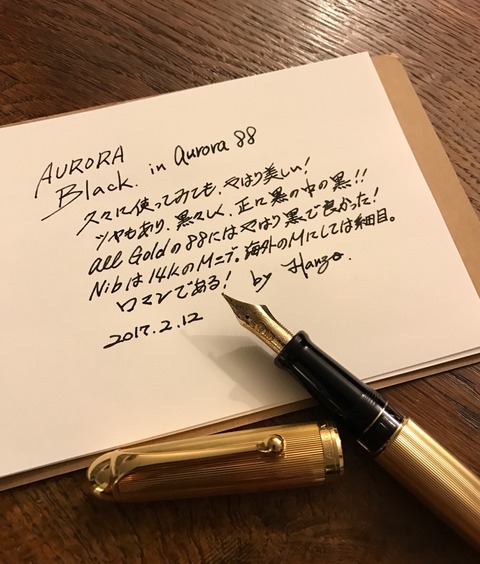 AURORA
Black. in Aurora 88
久々に使ってみても、やはり美しい!
ツヤもあり、黒々しく、正に黒の中の黒!!
all Goldの88にはやはり黒で良かった!
Nibは14KのMニブ。海外のMにしては細目。
ロマンである! by Hanzo.
2017.2.12